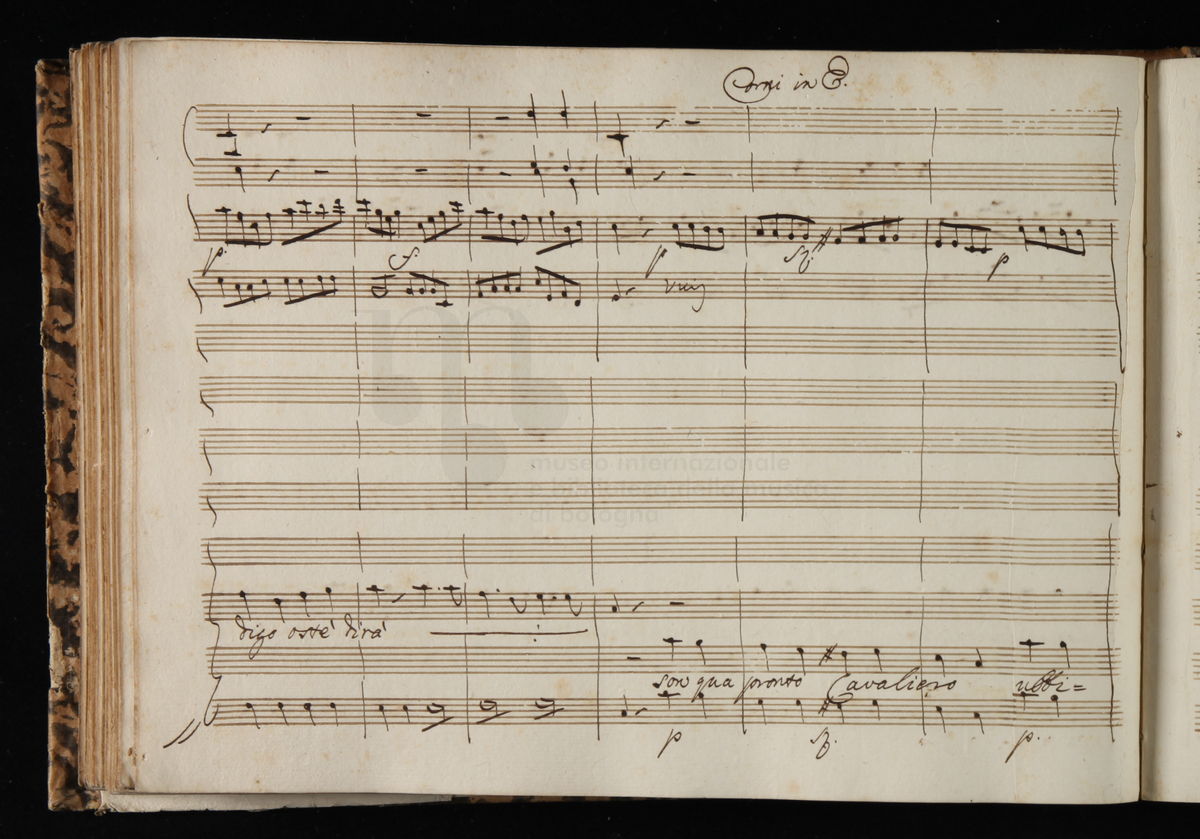 Corni in E.
p. f. p sf. p
Viuj
digo osté dirà
son qua pronto Cavaliero ubbi=
p sf. p.
museo internazionale
e biblioteca della musica
di bologna